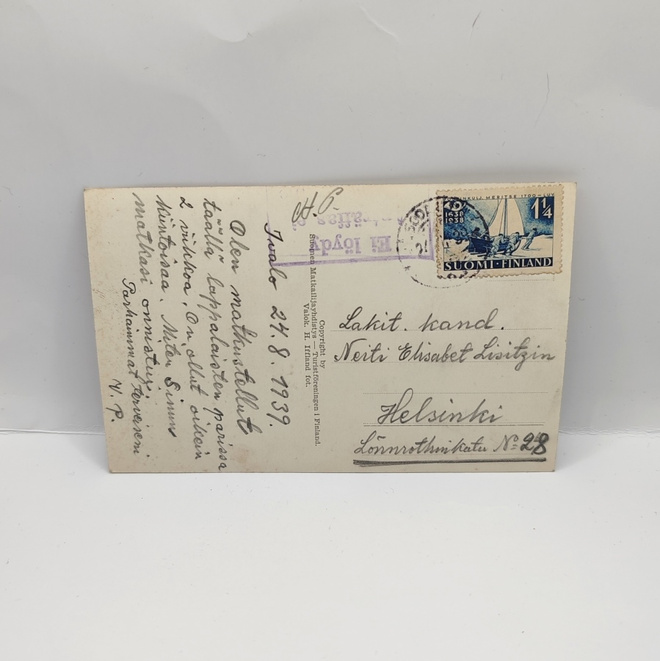 H. P.
Ivalo 24.8.1939.
Olen matkustellut
täällä lappalaisten parissa
2 viikkoa. On ollut oikein
kiintoisaa. Miten Sinun
matkasi onnistui?
Parhaimmat Terveiseni
V. P.
Copyright by
Suomen Matkailijayhdistys — Turistföreningen i Finland.
Valok. H. Iffland fot.
Ei löydy
1638
1938
1 1/4
SUOMI-FINLAND
Lakit. kand.
Neiti Elisabet Lisitzin
Helsinki
Lönnrothinkatu No 28